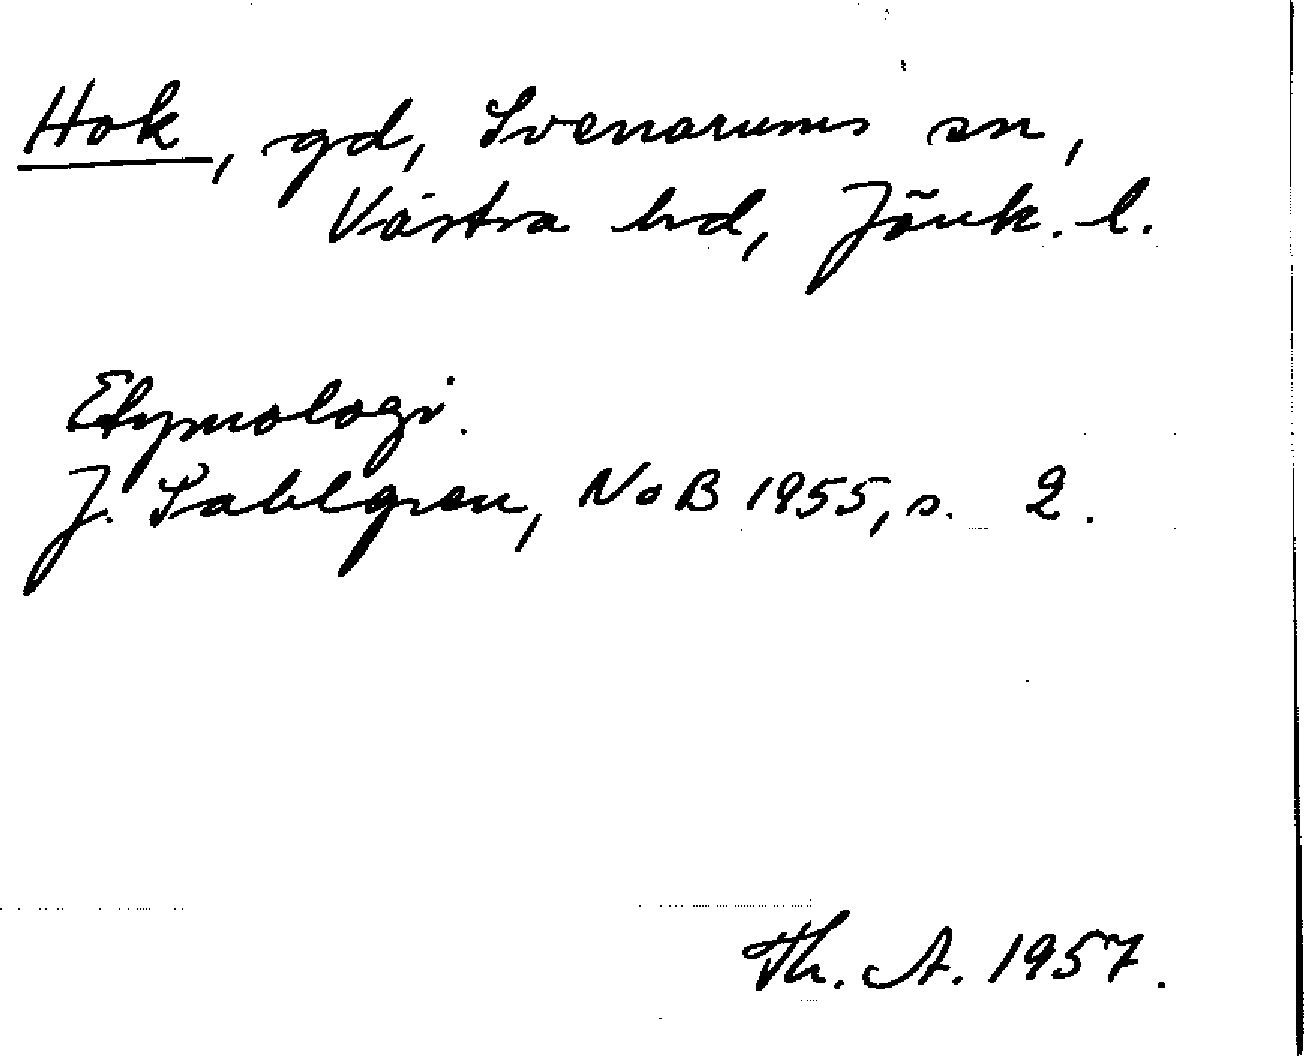 Hok, gd, Svenarums sn,
Västra hd, Jönk. l.
Etymologi.
J. Sahlgren, NoB 1955, s. 2.
Th. A. 1957.